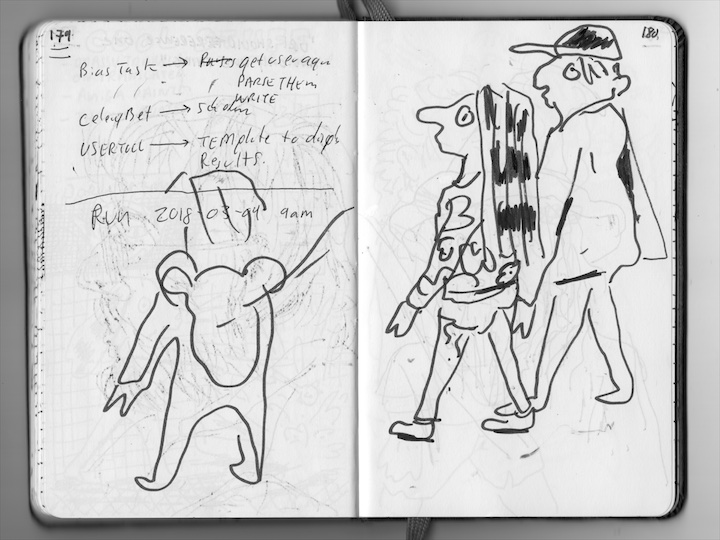 179
Bias Task → get user agen
" PARSE THEM
WRITE
CeleryBet →
USERTOOL → TEMplate to disply
Results.
RUN 2018-03-04 9am
180
B